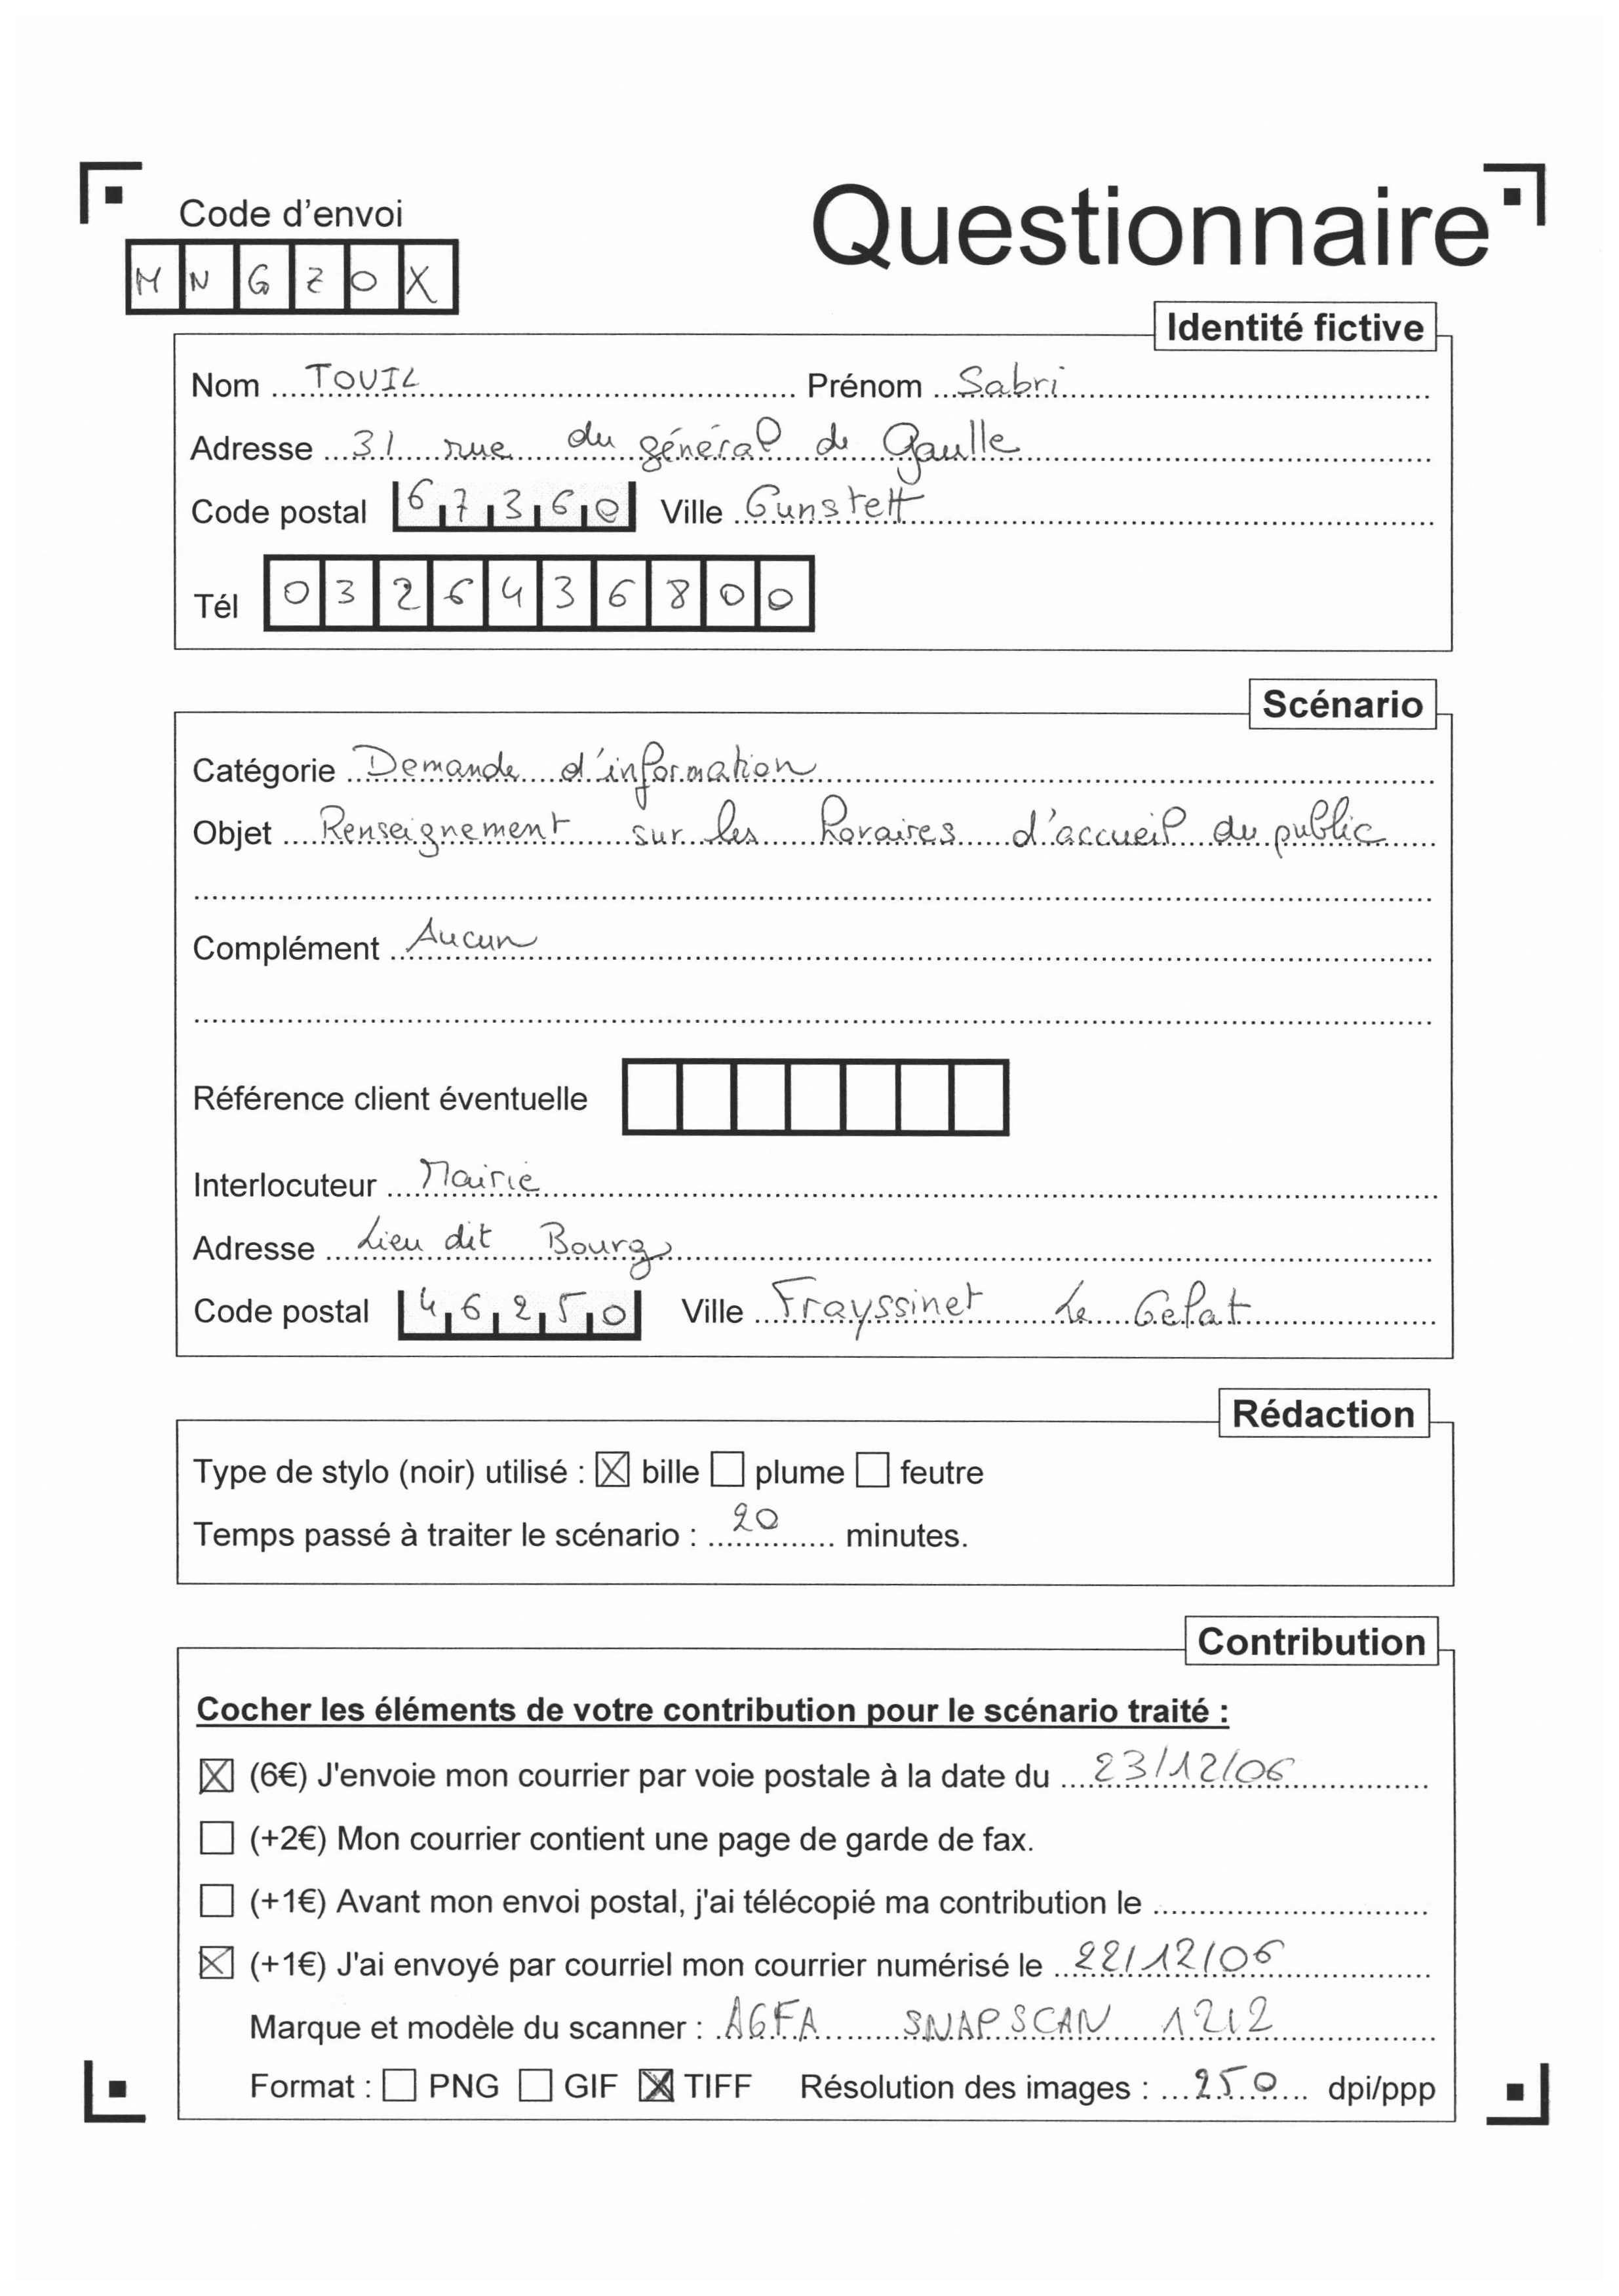 Code d'envoi
Questionnaire
M N G Z O X
Identité fictive
Nom TOUIL Prénom Sabri
Adresse 31 rue du général de Gaulle
Code postal 67360 Ville Gunstett
Tél 0326436800
Scénario
Catégorie Demande d'information
Objet Renseignement sur les horaires d'accueil du public
Complément Aucun
Référence client éventuelle
Interlocuteur Mairie
Adresse Lieu dit Bourg
Code postal 46250 Ville Frayssinet Le Gelat
Rédaction
Type de stylo (noir) utilisé : ☒ bille ☐ plume ☐ feutre
Temps passé à traiter le scénario : 20 minutes.
Contribution
Cocher les éléments de votre contribution pour le scénario traité :
☒ (6€) J'envoie mon courrier par voie postale à la date du 23/12/06
☐ (+2€) Mon courrier contient une page de garde de fax.
☐ (+1€) Avant mon envoi postal, j'ai télécopié ma contribution le
☒ (+1€) J'ai envoyé par courriel mon courrier numérisé le 22/12/06
Marque et modèle du scanner : AGFA SNAPSCAN 1212
Format : ☐ PNG ☐ GIF ☒ TIFF Résolution des images : 250 dpi/ppp